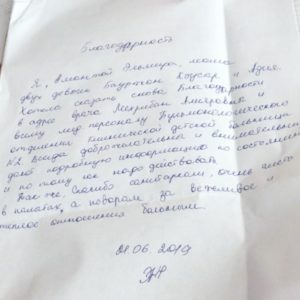 Благодарность
Я, Амантай Эльмира, мама
двух девочек Бауржан Каусар и Адия.
Хотела сказать слова Благодарности
в адрес врача Мехрибан Амировна и
всему мед персоналу Пульмонологического
отделения Клинической детской больницы
№2. Всегда доброжелательные и внимательные
дают подробную информацию по состоянию
и по тому как надо действовать.
Так же, Спасибо санитаркам, очень чисто
в палатах, а поварам за вежливое и
теплое отношения больным.
21.06.2019